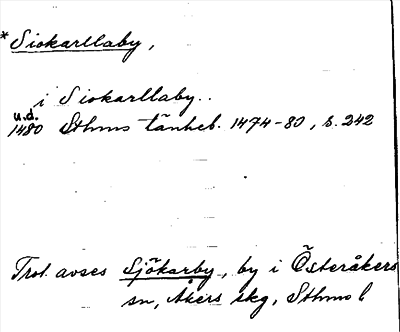 *Siokarllaby,
i Siokarllaby..
u.d.
1480 Sthms tänkeb. 1474-80, s. 242
Trol. avses Sjökarby, by i Österåkers
sn, Åkers skg, Sthms l